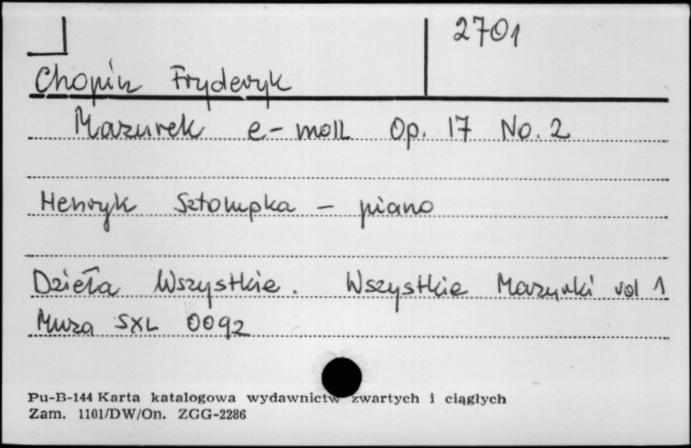 2701
Chopin Fryderyk
Mazurek e-moll Op. 17 No. 2
Henryk Sztompka - piano
Dzieła Wszystkie. Wszystkie Mazurki vol 1
Muza SXL 0092
Pu-B-144 Karta katalogowa wydawnictw zwartych i ciągłych
Zam. 1101/DW/On. ZGG-2286